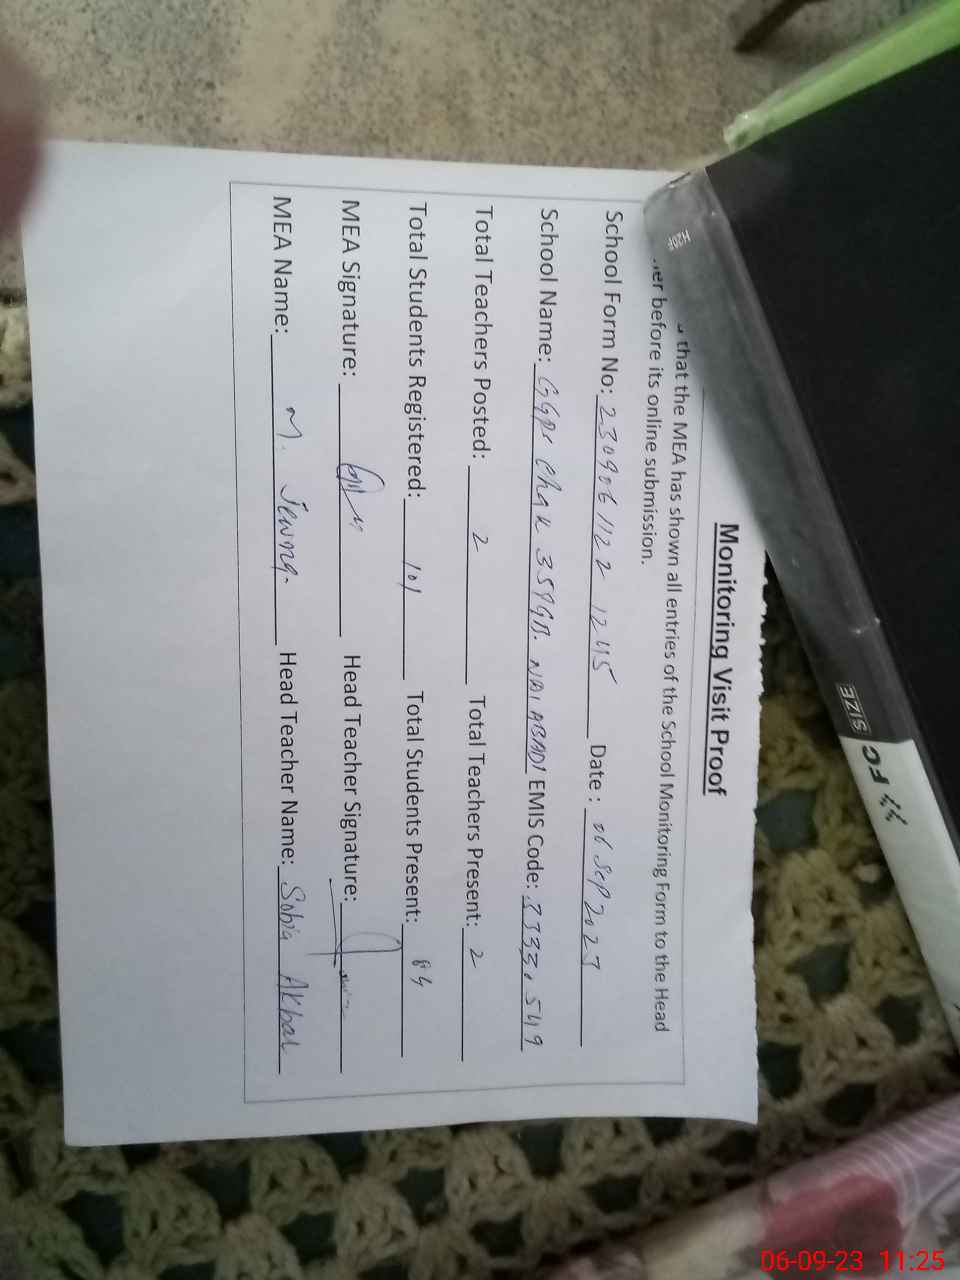 Monitoring Visit Proof
that the MEA has shown all entries of the School Monitoring Form to the Head
her before its online submission.
School Form No: 230906 1122 1245 Date : 06 Sep 2023
School Name: GGPS Chak 359GB. NAI ABADI EMIS Code: 3333 549
Total Teachers Posted: 2 Total Teachers Present: 2
Total Students Registered: 101 Total Students Present: 84
MEA Signature: Head Teacher Signature:
MEA Name: M. Head Teacher Name: Sobia Akbar
H20F
SIZE FC
06-09-23 11:25